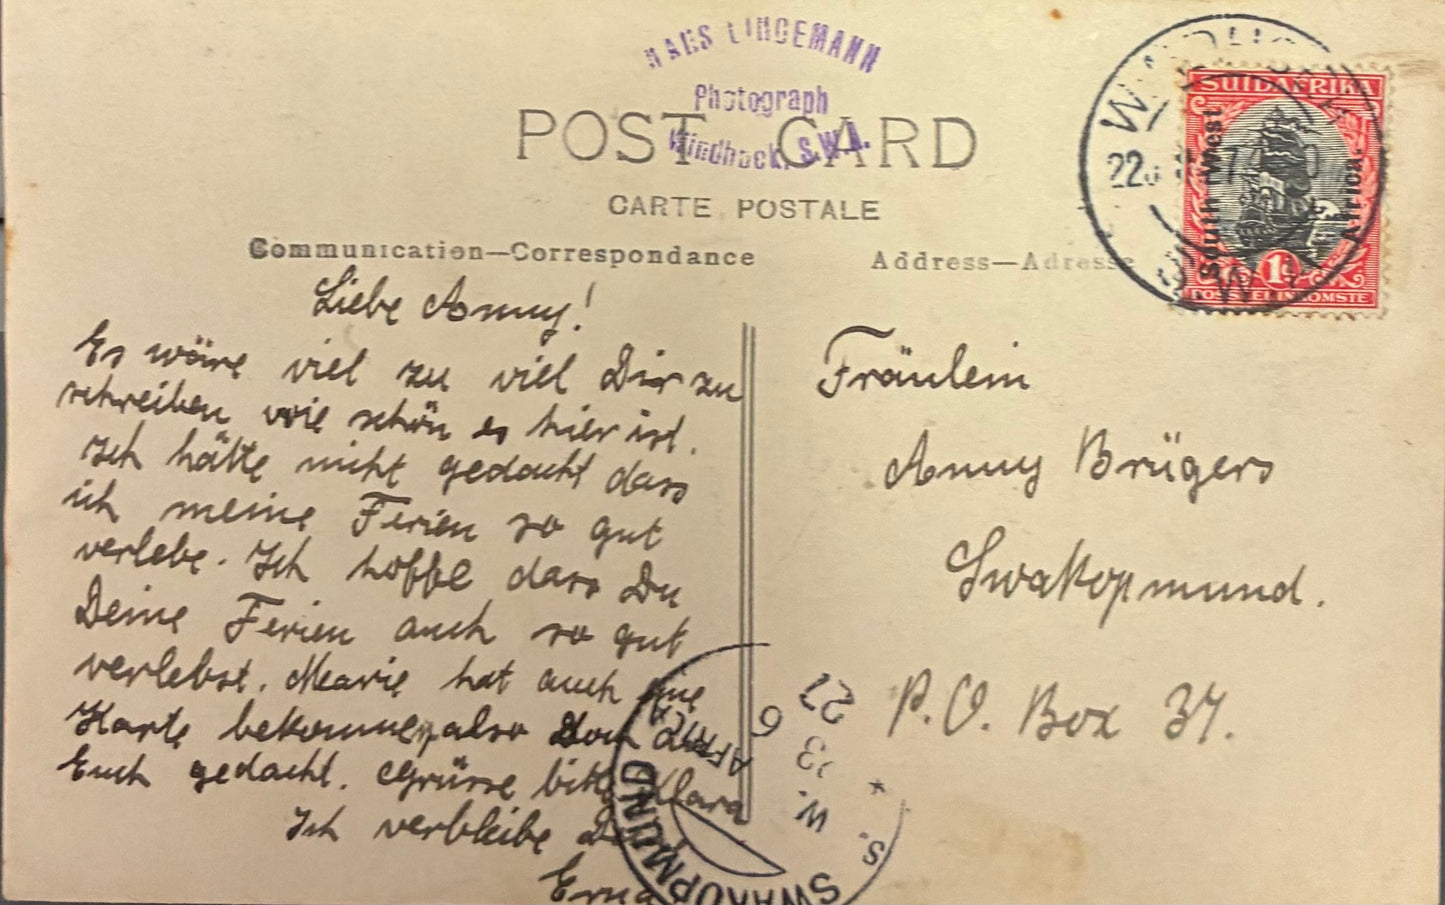 HANS LINDEMANN
Photograph
Windhoek, S.W.A.
POST CARD
CARTE POSTALE
Communication—Correspondance
Address—Adresse
SUIDAFRIKA
South West
Africa.
1d
22
S.W.A.
Liebe Anny!
Es wäre viel zu viel Dir zu
schreiben wie schön es hier ist.
Ich hätte nicht gedacht dass
ich meine Ferien so gut
verlebe. Ich hoffe dass Du
Deine Ferien auch so gut
verlebst. Marie hat auch eine
Karte bekommen, also doch an
Euch gedacht. Grüsse bitte Klara
Ich verbleibe
Erna
Fräulein
Anny Brügers
Swakopmund.
P.O. Box 37.
SWAKOPMUND
S. W. AFRICA
27
6
33